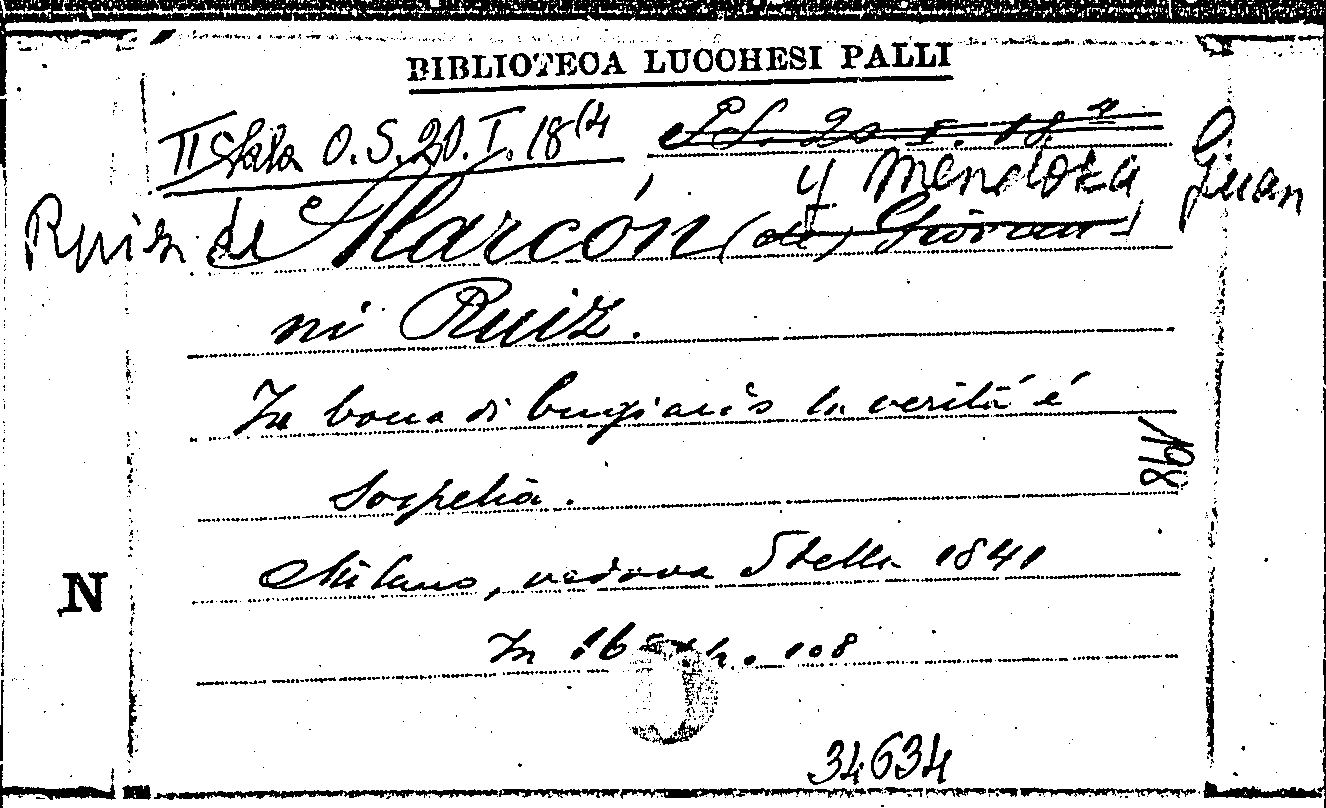 BIBLIOTECA LUCCHESI PALLI
II Sala O.S. 20. I. 18(4 P.S. 20. I. 18.4
Ruiz de Alarcón y Mendoza Juan (de) Giovan-
ni Ruiz.
In bocca di bugiardo la veritá é
sospetta.
Milano, vedova Stella 1841
In 16 108
N
34634